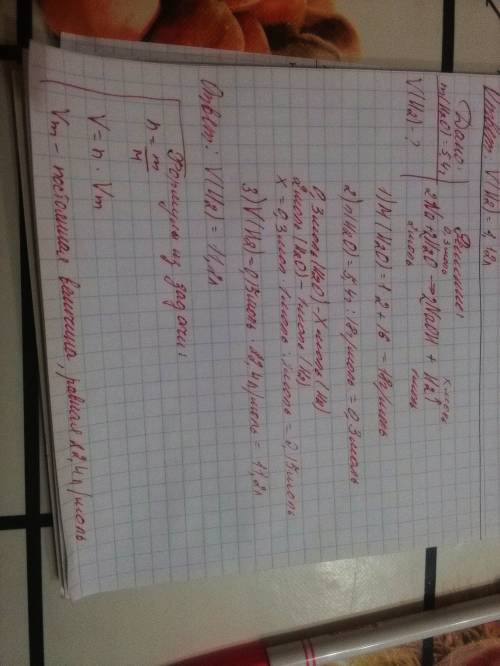 Ответ: V(H2) =
Дано: Решение:
0,3 моль x моль
m(H2O) = 5,4г 2Na + 2H2O → 2NaOH + H2↑
V(H2) - ? 2 моль 1 моль
1) M(H2O) = 1·2 + 16 = 18г/моль
2) n(H2O) = 5,4г : 18г/моль = 0,3 моль
0,3 моль (H2O) - x моль (H2)
2 моль (H2O) - 1 моль (H2)
x = 0,3 моль · 1 моль : моль = 0,15 моль
3) V(H2) = 0,15 моль · 22,4 л/моль = л
Ответ: V(H2) = л
Формулы из задачи:
n = m/M
V = n · Vm
Vm - постоянная величина, равная 22,4 л/моль